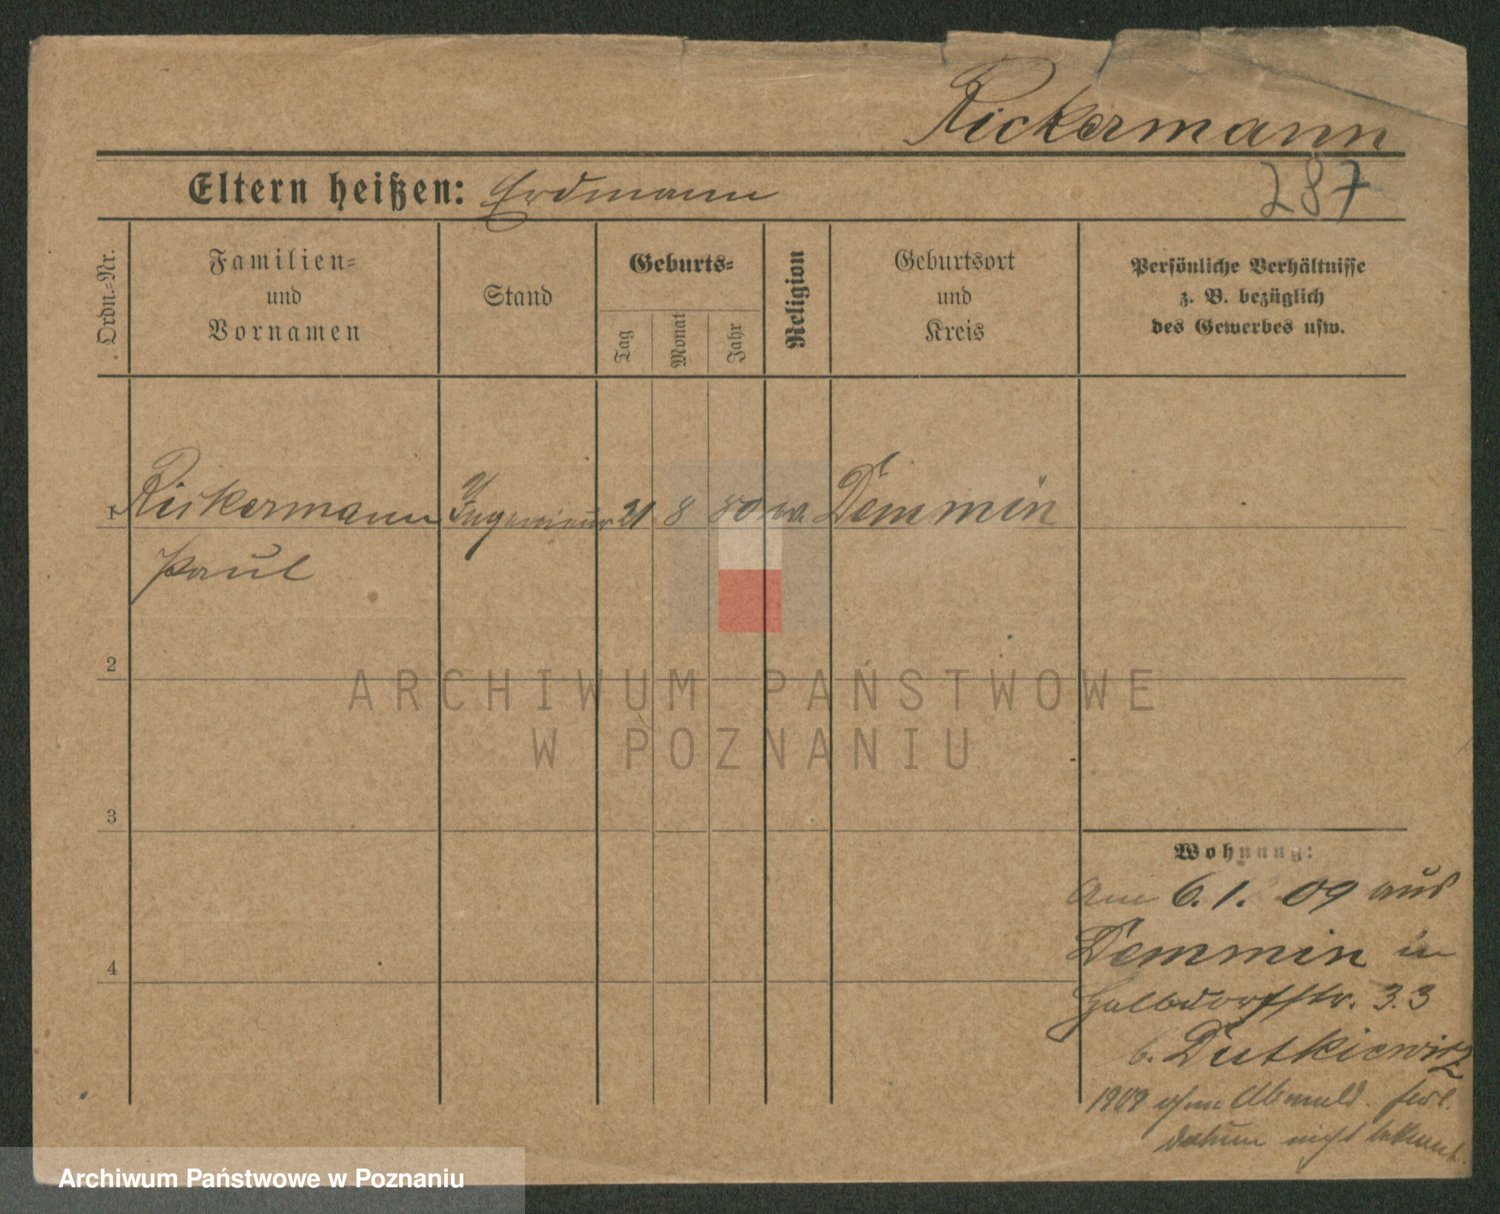 Rickermann
287
Eltern heißen: Erdmann
Ordn.-Nr.
Familien-
und
Vornamen
Stand
Geburts-
Tag
Monat
Jahr
Religion
Geburtsort
und
Kreis
Persönliche Verhältnisse
z. B. bezüglich
des Gewerbes usw.
1 Rickermann Ingenieur 21 8 80 Demmin
Paul
2
3
4
Wohnung:
Am 6. 1. 09 aus
Demmin in
Halbdorfstr. 33
b. Dutkiewitz
1909 ohne Abmeld.
Datum nicht bekannt
ARCHIWUM PAŃSTWOWE
W POZNANIU
Archiwum Państwowe w Poznaniu